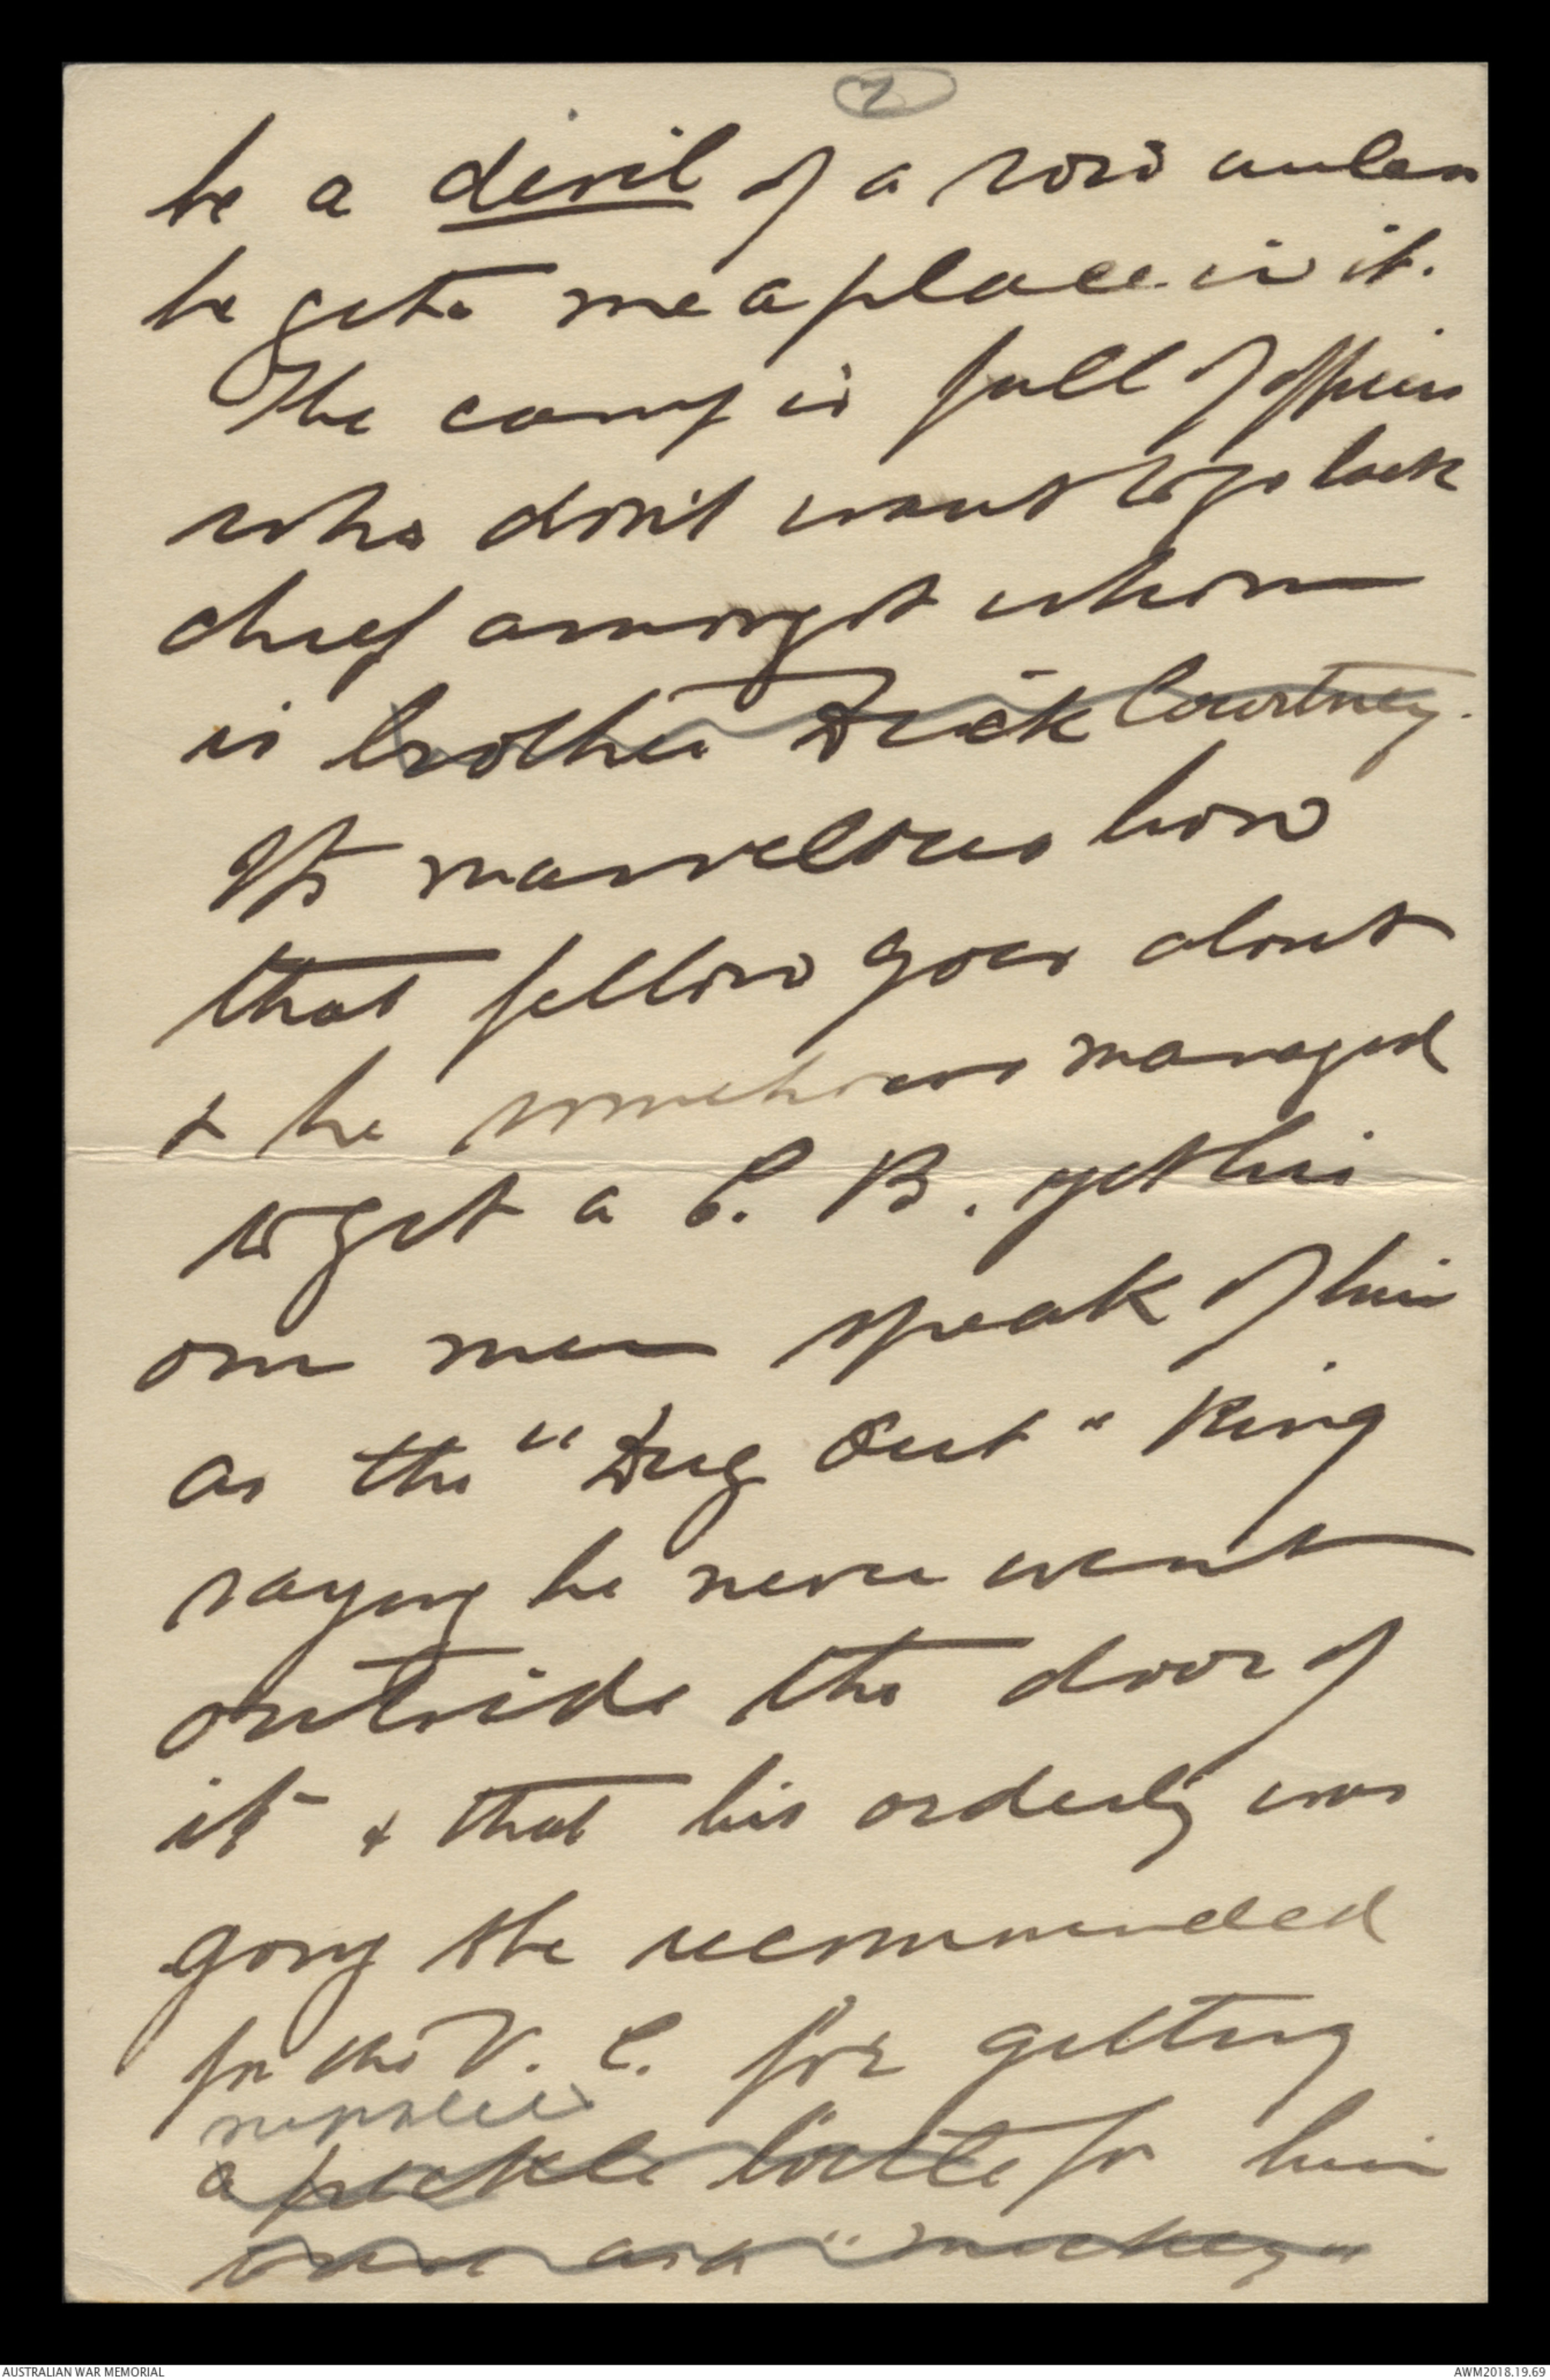 2
be a devil of a row unless
he gets me a place in it.
The camp is full of officers
who don't want to go back
chief amongst whom
is brother Dick Courtney.
Its marvelous how
that fellow goes about
& he somehow managed
to get a C. B. yet his
own men speak of him
as the "Dug Out" King
saying he never went
outside the door of
it & that his orderly was
going to be recommended
for the V. C. for getting
supplies
a pickle bottle for him
to use as a "mickey"
AUSTRALIAN WAR MEMORIAL
AWM2018.19.69